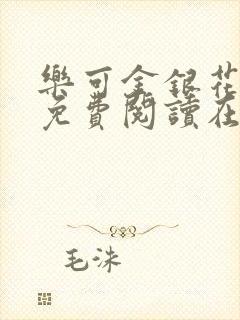 樂可金銀花
免費閱讀在
毛洙